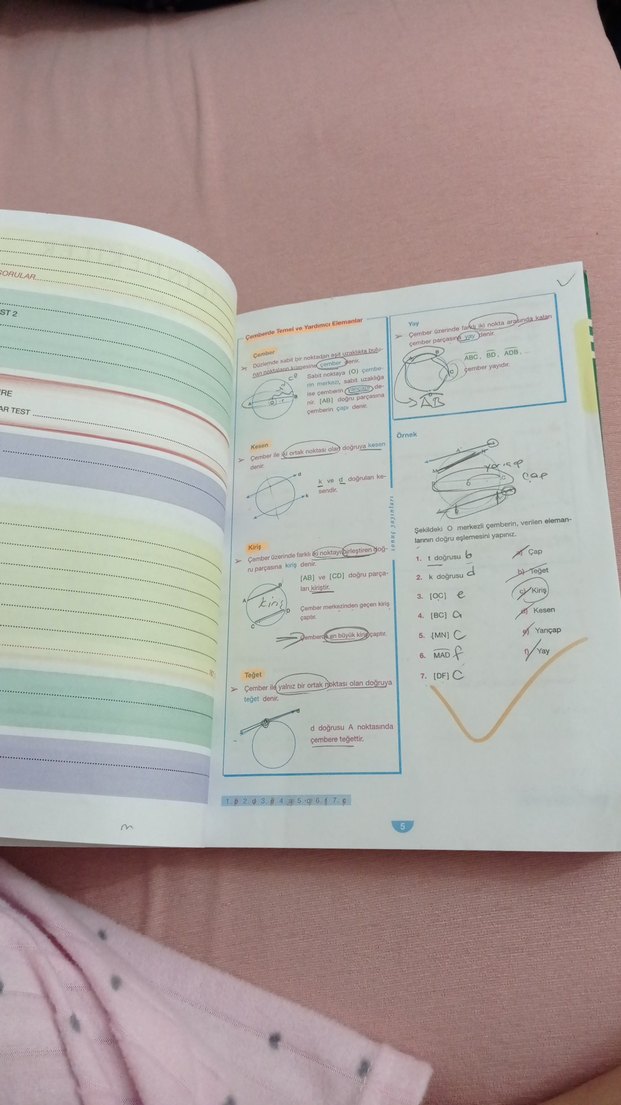 SORULAR
ST 2
ERE
AR TEST
Çemberde Temel ve Yardımcı Elemanlar
Çember
Düzlemde sabit bir noktadan eşit uzaklıkta bulu-
nan noktaların kümesine çember denir.
Sabit noktaya (O) çembe-
rin merkezi, sabit uzaklığa
ise çemberin yarıçapı de-
nir. [AB] doğru parçasına
çemberin çapı denir.
A
O
r
B
Kesen
Çember ile iki ortak noktası olan doğruya kesen
denir.
d
k
k ve d doğruları ke-
sendir.
Kiriş
Çember üzerinde farklı iki noktayı birleştiren doğ-
ru parçasına kiriş denir.
[AB] ve [CD] doğru parça-
ları kiriştir.
A
B
kiriş
D
C
Çember merkezinden geçen kiriş
çaptır.
Çemberde en büyük kiriş çaptır.
Teğet
Çember ile yalnız bir ortak noktası olan doğruya
teğet denir.
d doğrusu A noktasında
çembere teğettir.
1. b 2. d 3. e 4. a 5. c 6. f 7. c
Yay
Çember üzerinde farklı iki nokta arasında kalan
çember parçasına yay denir.
B
C
ABC, BD, ADB ...
çember yayıdır.
AB
Örnek
yarıçap
çap
Şekildeki O merkezli çemberin, verilen eleman-
larının doğru eşlemesini yapınız.
1. t doğrusu b
a) Çap
2. k doğrusu d
b) Teğet
3. [OC] e
c) Kiriş
4. [BC] a
d) Kesen
5. [MN] c
e) Yarıçap
6. MAD f
f) Yay
7. [DF] c
5